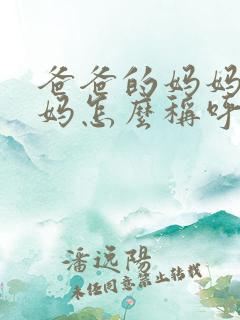 爸爸的妈妈
妈怎麼稱呼
潘远陽
未经同意禁止转载